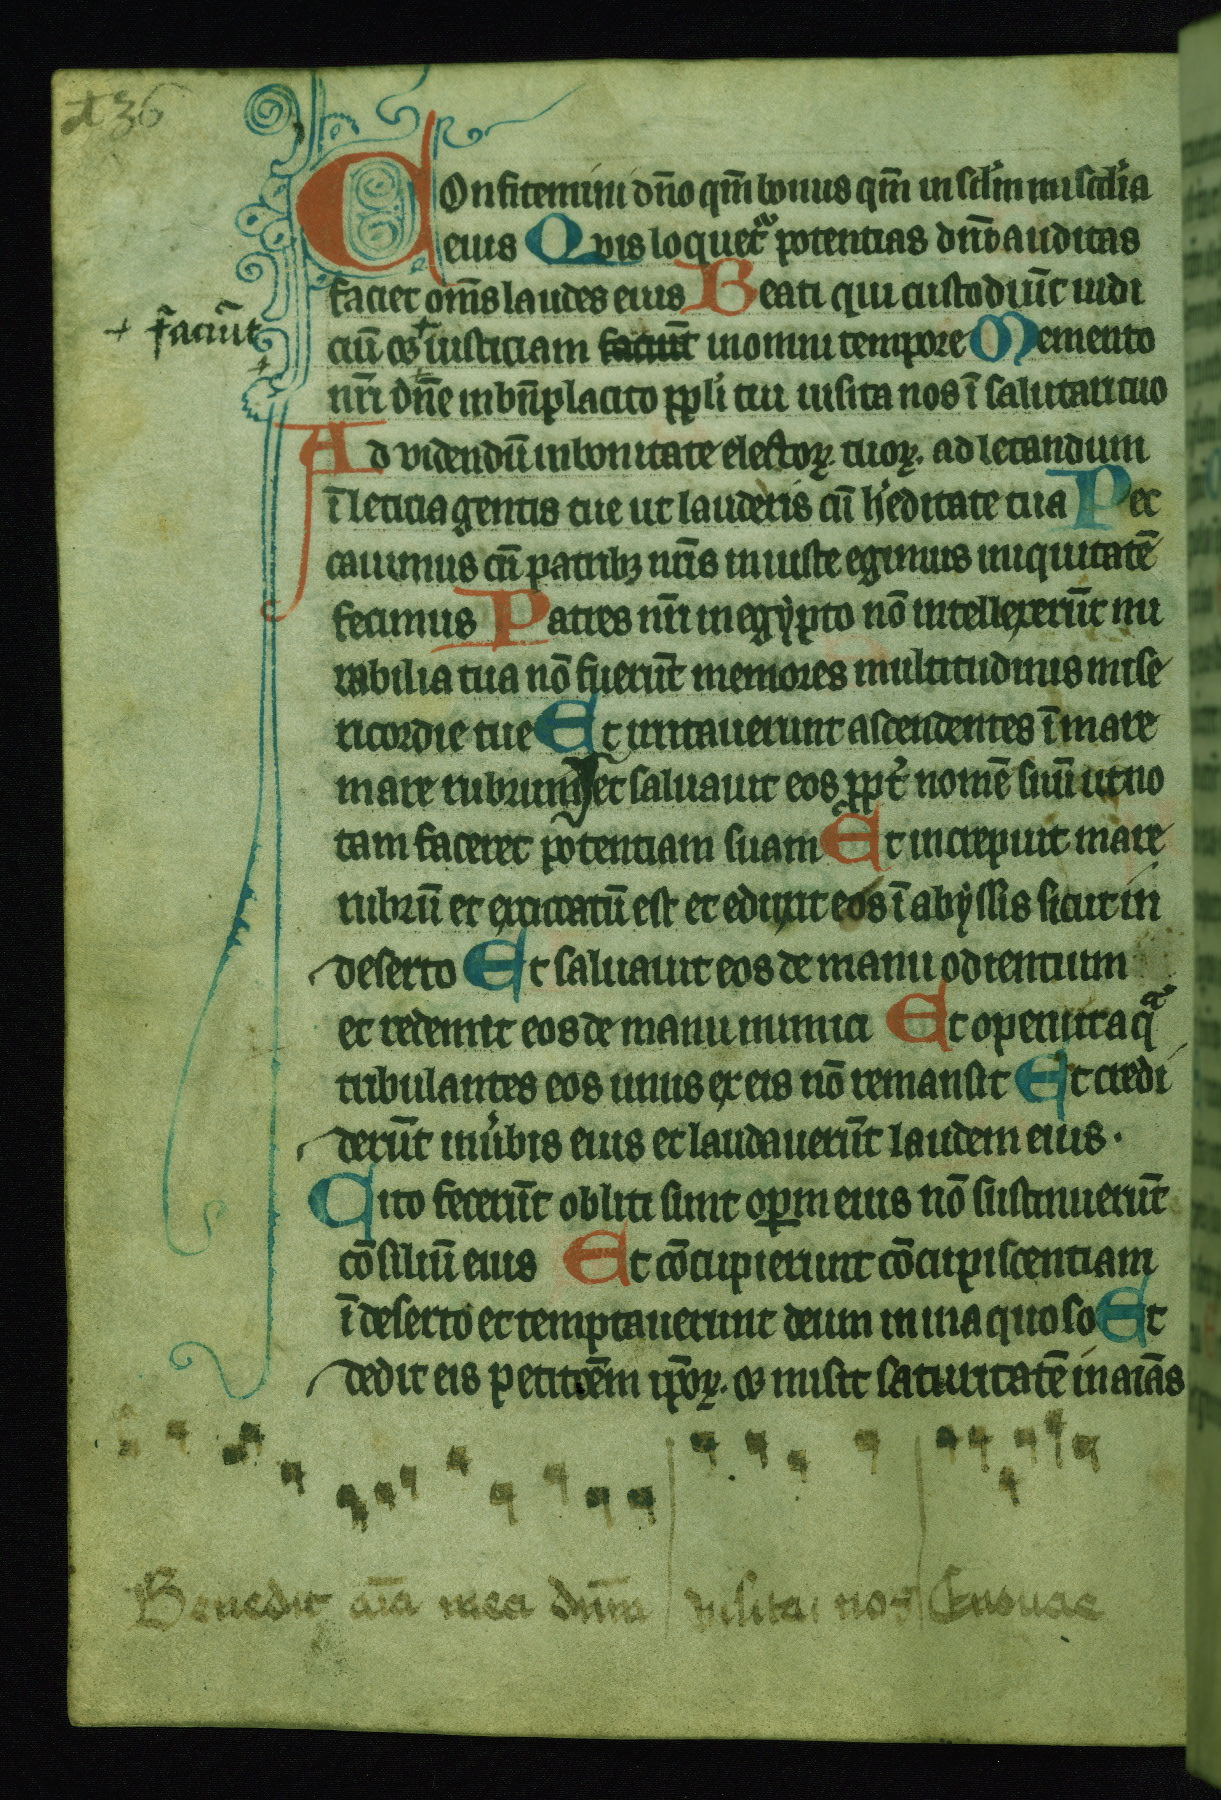 136
Confitemini dn̄o qm̄ bonus qm̄ in sclm̄ miscdīa
eius Quis loquetᵃ potentias dn̄i auditas
faciet om̄s laudes eius Beati qui custodiūt iudi
ciū ⁊ iusticiam faciūt in omni tempore Memento
+ faciūt
nr̄i dn̄e in bn̄placito ppl̄i tui uisita nos ī salutari tuo
Ad videndū in bonitate electoꝝ tuoꝝ. ad letandum
ī leticia gentis tue ut lauderis cū h̄editate tua Pec
cauimus cū patribꝫ nr̄is iniuste egimus iniquitatē
fecimus Patres nr̄i in egẏpto nō intellexerūt mi
rabilia tua nō fuerūt memores multitudinis mise
ricordie tue Et irritauerunt ascendentes ī mare
mare rubrum et saluauit eos ppt̄ nomē suū ut no
tam faceret potentiam suam Et increpuit mare
rubrū et exiccatū est et eduxit eos ī abẏssis sicut in
deserto Et saluauit eos de manu odientium
et redemit eos de manu inimici Et operuit aqᵃ
tribulantes eos unus ex eis nō remansit Et credi
derūt in u̓bis eius et laudauerūt laudem eius.
Cito fecerūt obliti sunt oꝑm eius nō sustinuerūt
cōsiliū eius Et cōcupierunt cōcupiscentiam
ī deserto et temptauerunt deum in inaquoso Et
dedit eis petitōem ip̄oꝝ. ⁊ misit saturitatē in aīas
Benedic aīa mea dn̄m visita nos Euouae